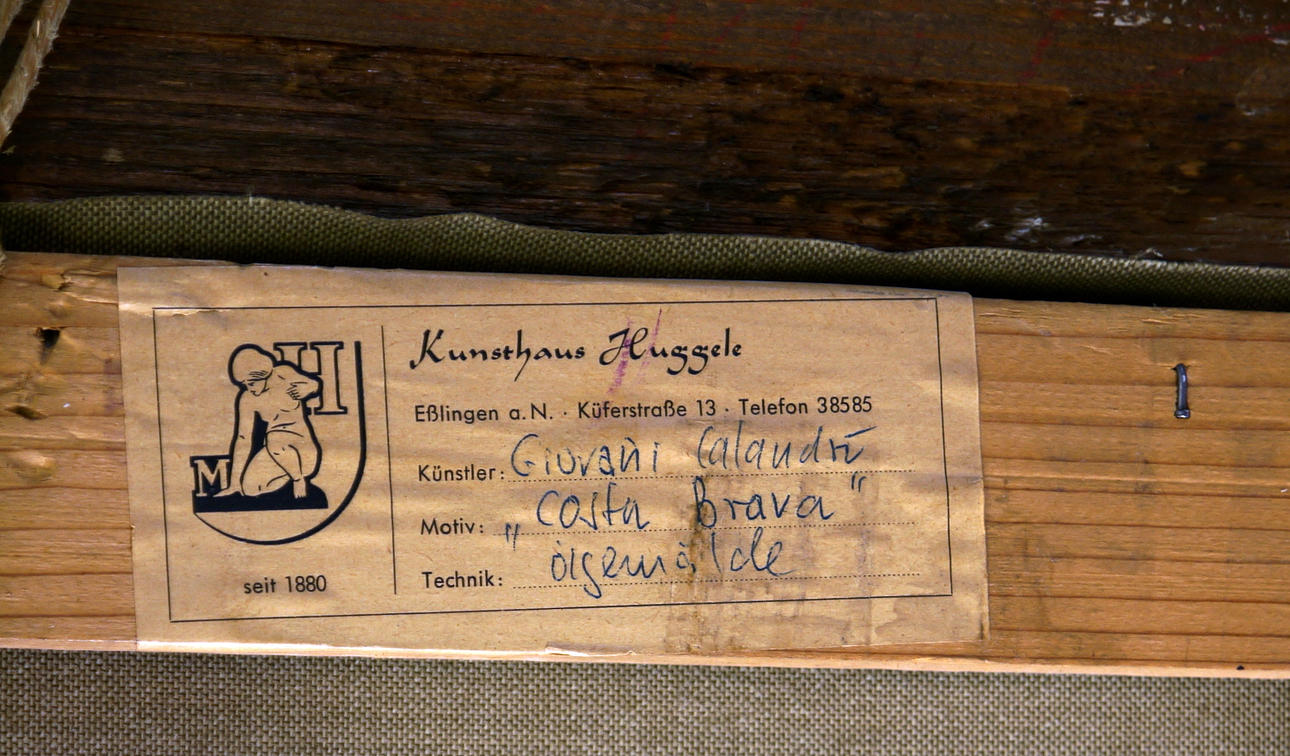 MH
seit 1880
Kunsthaus Huggele
Eßlingen a. N. · Küferstraße 13 · Telefon 38585
Künstler: Giovani Calandri
Motiv: „Costa Brava“
Technik: ölgemälde